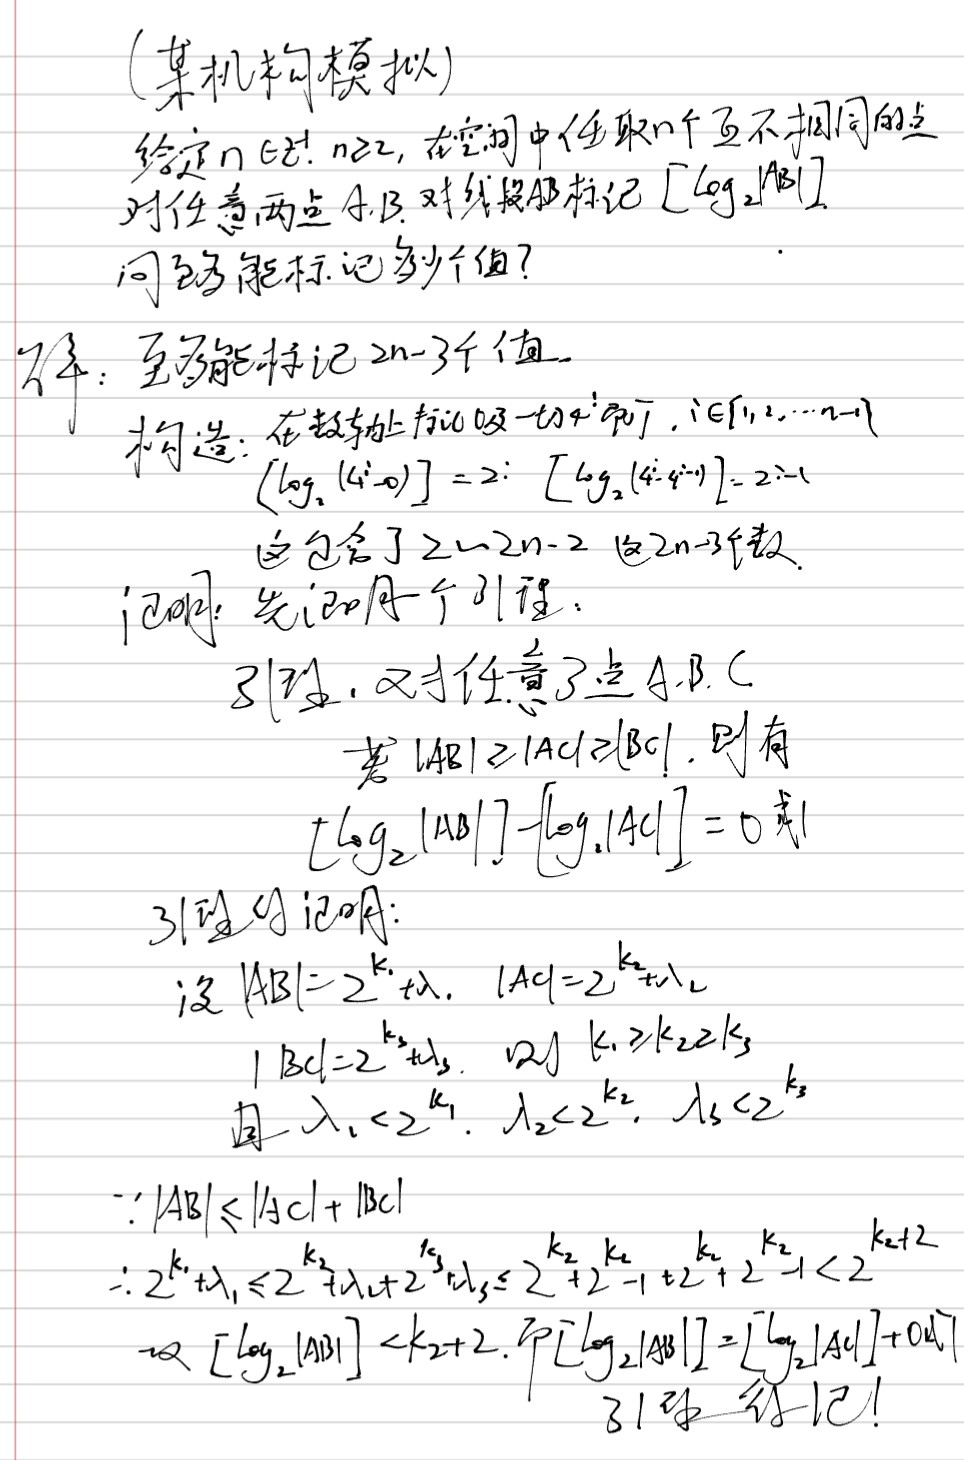 (某机构模拟)
给定n∈Z⁺. n≥2, 在空间中任取n个互不相同的点
对任意两点A.B. 对线段AB标记[log₂|AB|].
问至多能标记多少个值?
解: 至多能标记2n-3个值.
构造: 在数轴上标记0及一切4^i即可, i∈{1,2,…n-1}
[log₂(4^i-0)]=2i [log₂(4^i-4^(i-1))]=2i-1
这包含了2~2n-2 这2n-3个数.
证明: 先证明个引理:
引理. 对任意3点A.B.C
若|AB|≥|AC|≥|BC|. 则有
[log₂|AB|]-[log₂|AC|]=0或1
引理的证明:
设|AB|=2^(k₁)+λ₁. |AC|=2^(k₂)+λ₂
|BC|=2^(k₃)+λ₃. 则 k₁≥k₂≥k₃
且 λ₁<2^(k₁). λ₂<2^(k₂). λ₃<2^(k₃)
∵|AB|≤|AC|+|BC|
∴2^(k₁)+λ₁≤2^(k₂)+λ₂+2^(k₃)+λ₃≤2^(k₂)+2^(k₂)-1+2^(k₂)+2^(k₂)-1<2^(k₂+2)
故[log₂|AB|]<k₂+2. 即[log₂|AB|]=[log₂|AC|]+0或1
引理得证!